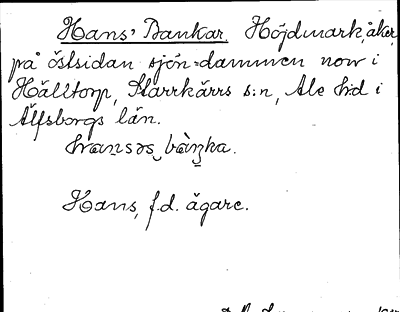 Hans' Bankar, Höjdmark, åker,
på östsidan sjön-dammen norr i
Hälltorp, Starrkärrs s:n, Ale hd i
Älfsborgs län.
hransəs bànka.
Hans, f.d. ägare.